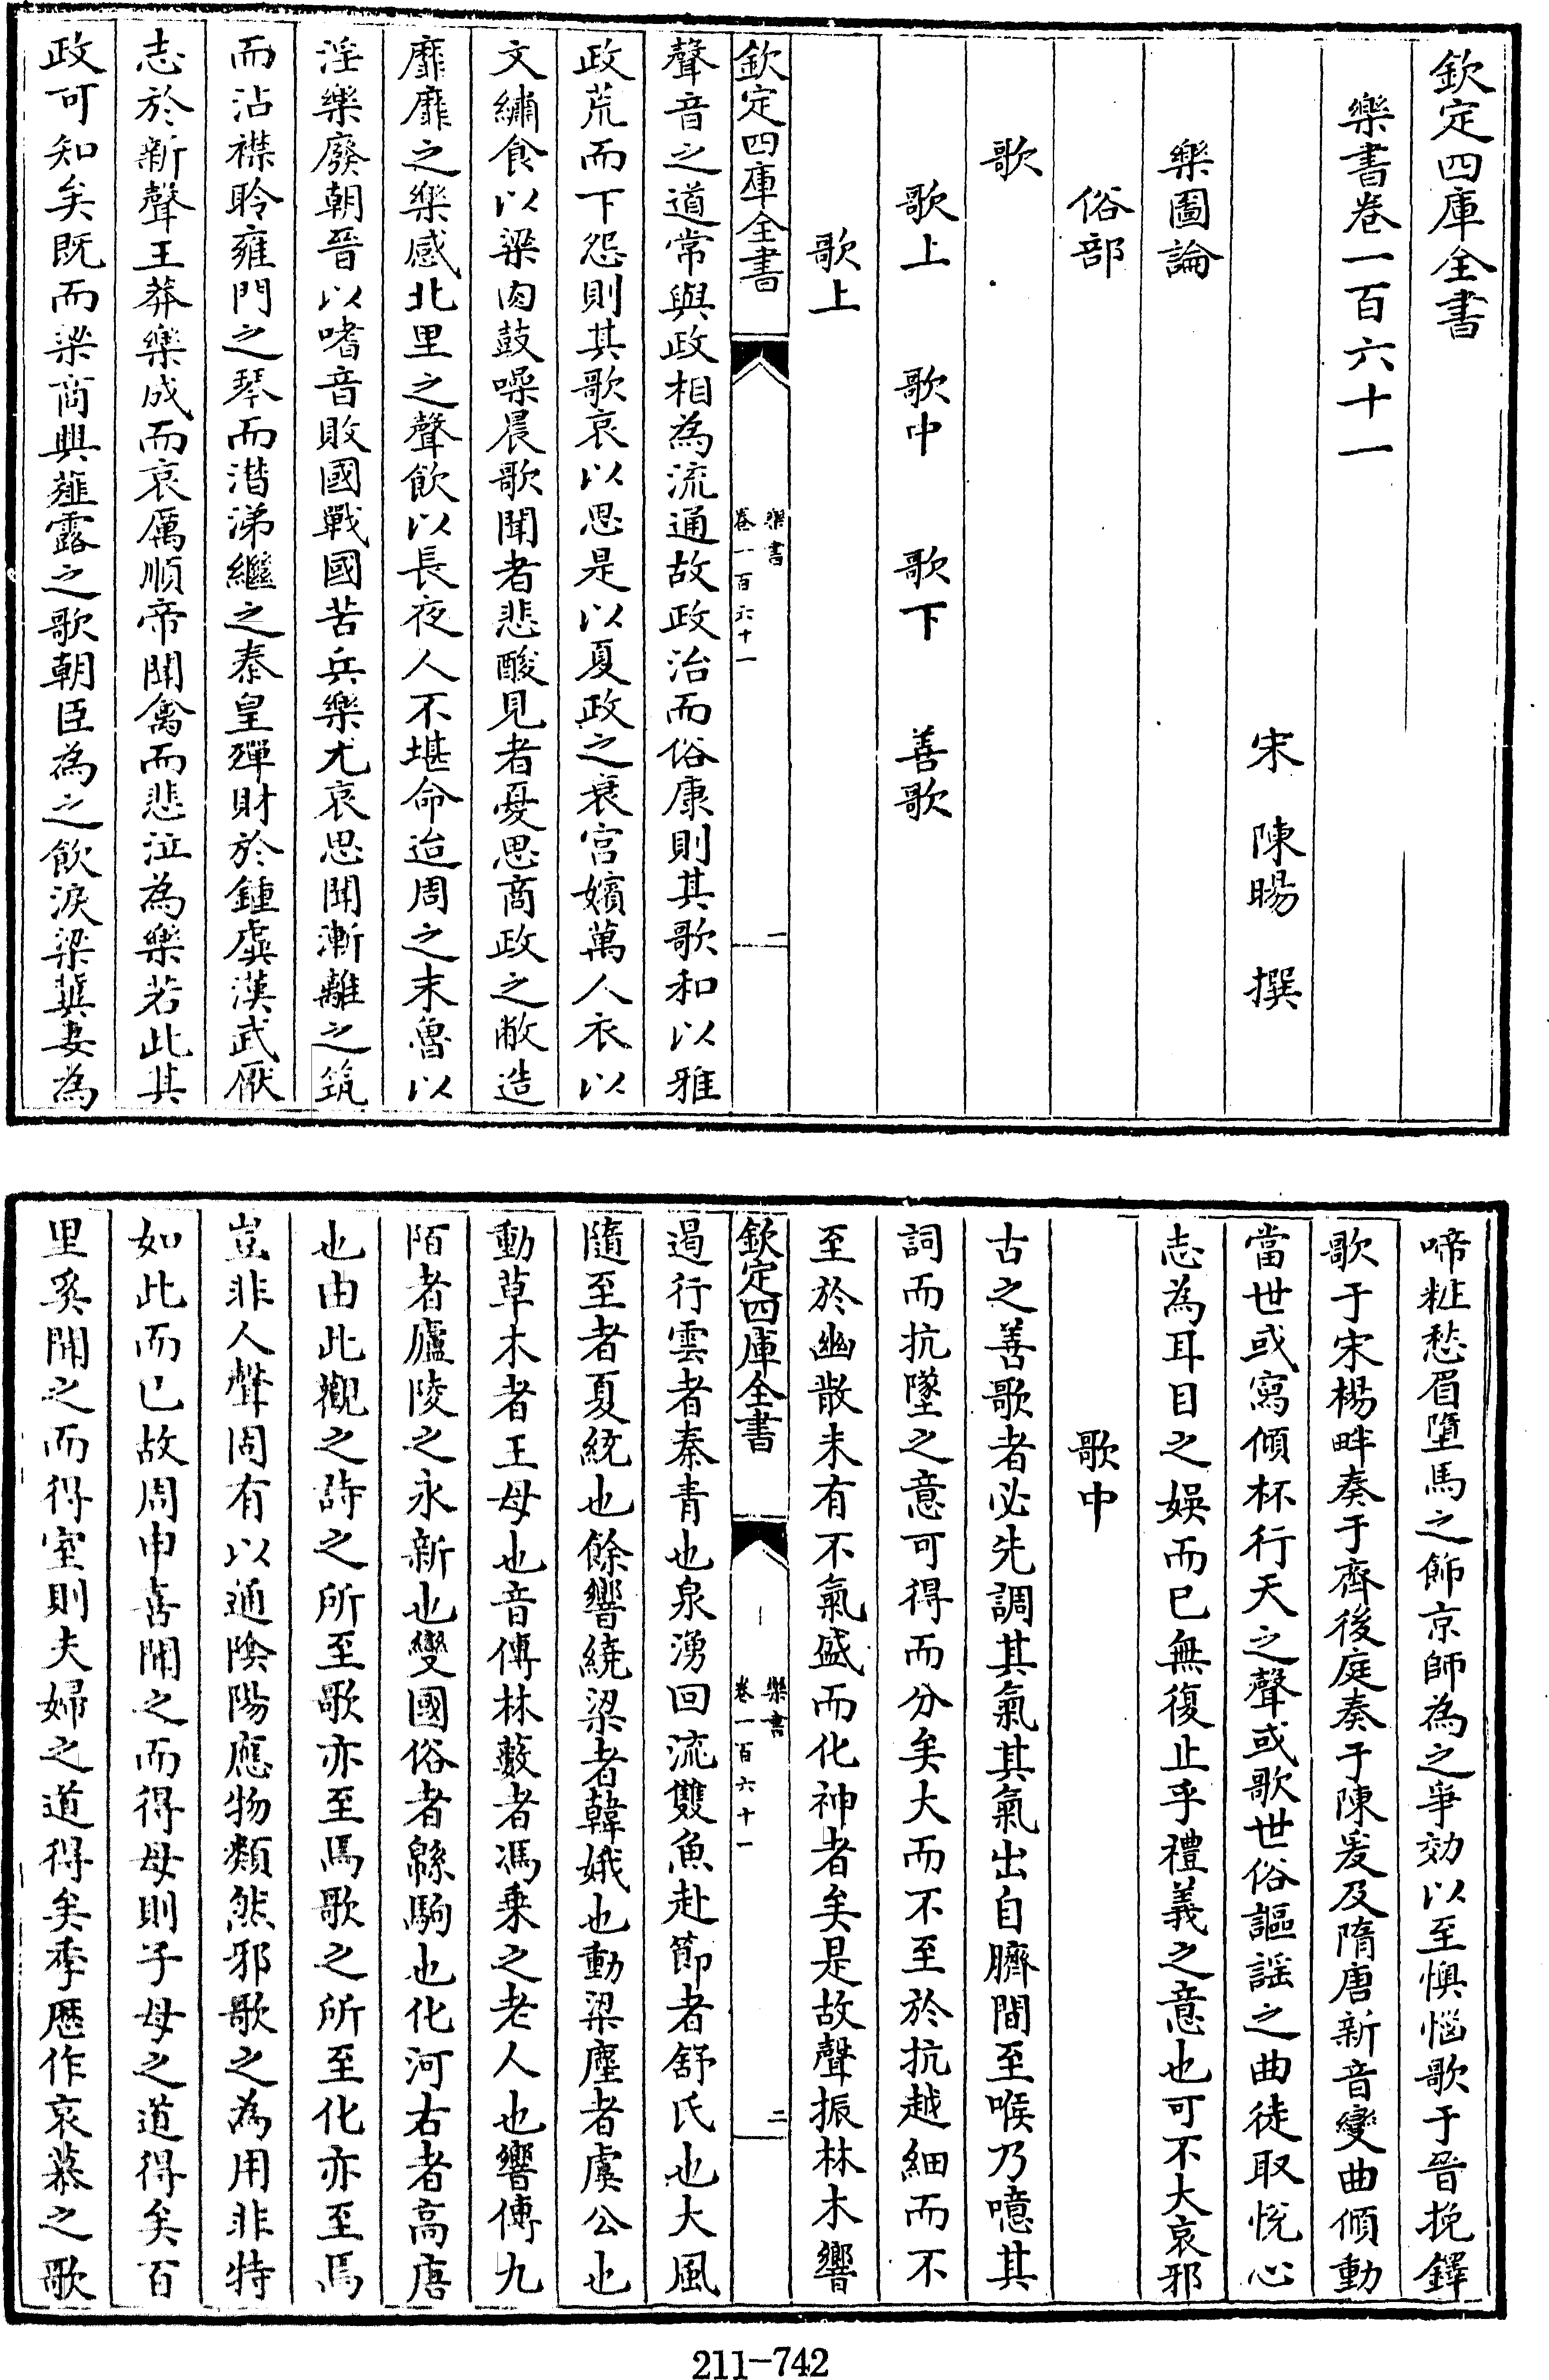 欽定四庫全書
樂書卷一百六十一
宋 陳暘 撰
樂圖論
俗部
歌
歌上 歌中 歌下 善歌
歌上
欽定四庫全書 樂書 卷一百六十一 一
聲音之道常與政相為流通故政治而俗康則其歌和以雅
政荒而下怨則其歌哀以思是以夏政之衰宮嬪萬人衣以
文繡食以粱肉鼓噪晨歌聞者悲酸見者憂思商政之敝造
靡靡之樂感北里之聲飲以長夜人不堪命迨周之末魯以
淫樂廢朝晉以嗜音敗國戰國苦兵樂尤哀思聞漸離之筑
而沾襟聆雍門之琴而潸涕繼之秦皇殫財於鍾虡漢武厭
志於新聲王莽樂成而哀厲順帝聞禽而悲泣為樂若此其
政可知矣既而梁商興薤露之歌朝臣為之飲淚梁冀妻為
啼粧愁眉墮馬之飾京師為之爭効以至懊惱歌于晉挽鐸
歌于宋楊畔奏于齊後庭奏于陳爰及隋唐新音變曲傾動
當世或寫傾杯行天之聲或歌世俗謳謡之曲徒取悅心
志為耳目之娛而已無復止乎禮義之意也可不大哀邪
歌中
古之善歌者必先調其氣其氣出自臍間至喉乃噫其
詞而抗墜之意可得而分矣大而不至於抗越細而不
至於幽散未有不氣盛而化神者矣是故聲振林木響
欽定四庫全書 樂書 卷一百六十一 二
遏行雲者秦青也泉湧回流雙魚赴節者舒氏也大風
隨至者夏統也餘響繞梁者韓娥也動梁塵者虞公也
動草木者王母也音傳林藪者馮乗之老人也響傳九
陌者廬陵之永新也變國俗者緜駒也化河右者高唐
也由此觀之詩之所至歌亦至焉歌之所至化亦至焉
豈非人聲固有以通隂陽應物類然邪歌之為用非特
如此而已故周申喜聞之而得母則子母之道得矣百
里奚聞之而得室則夫婦之道得矣季厯作哀慕之歌
211-742